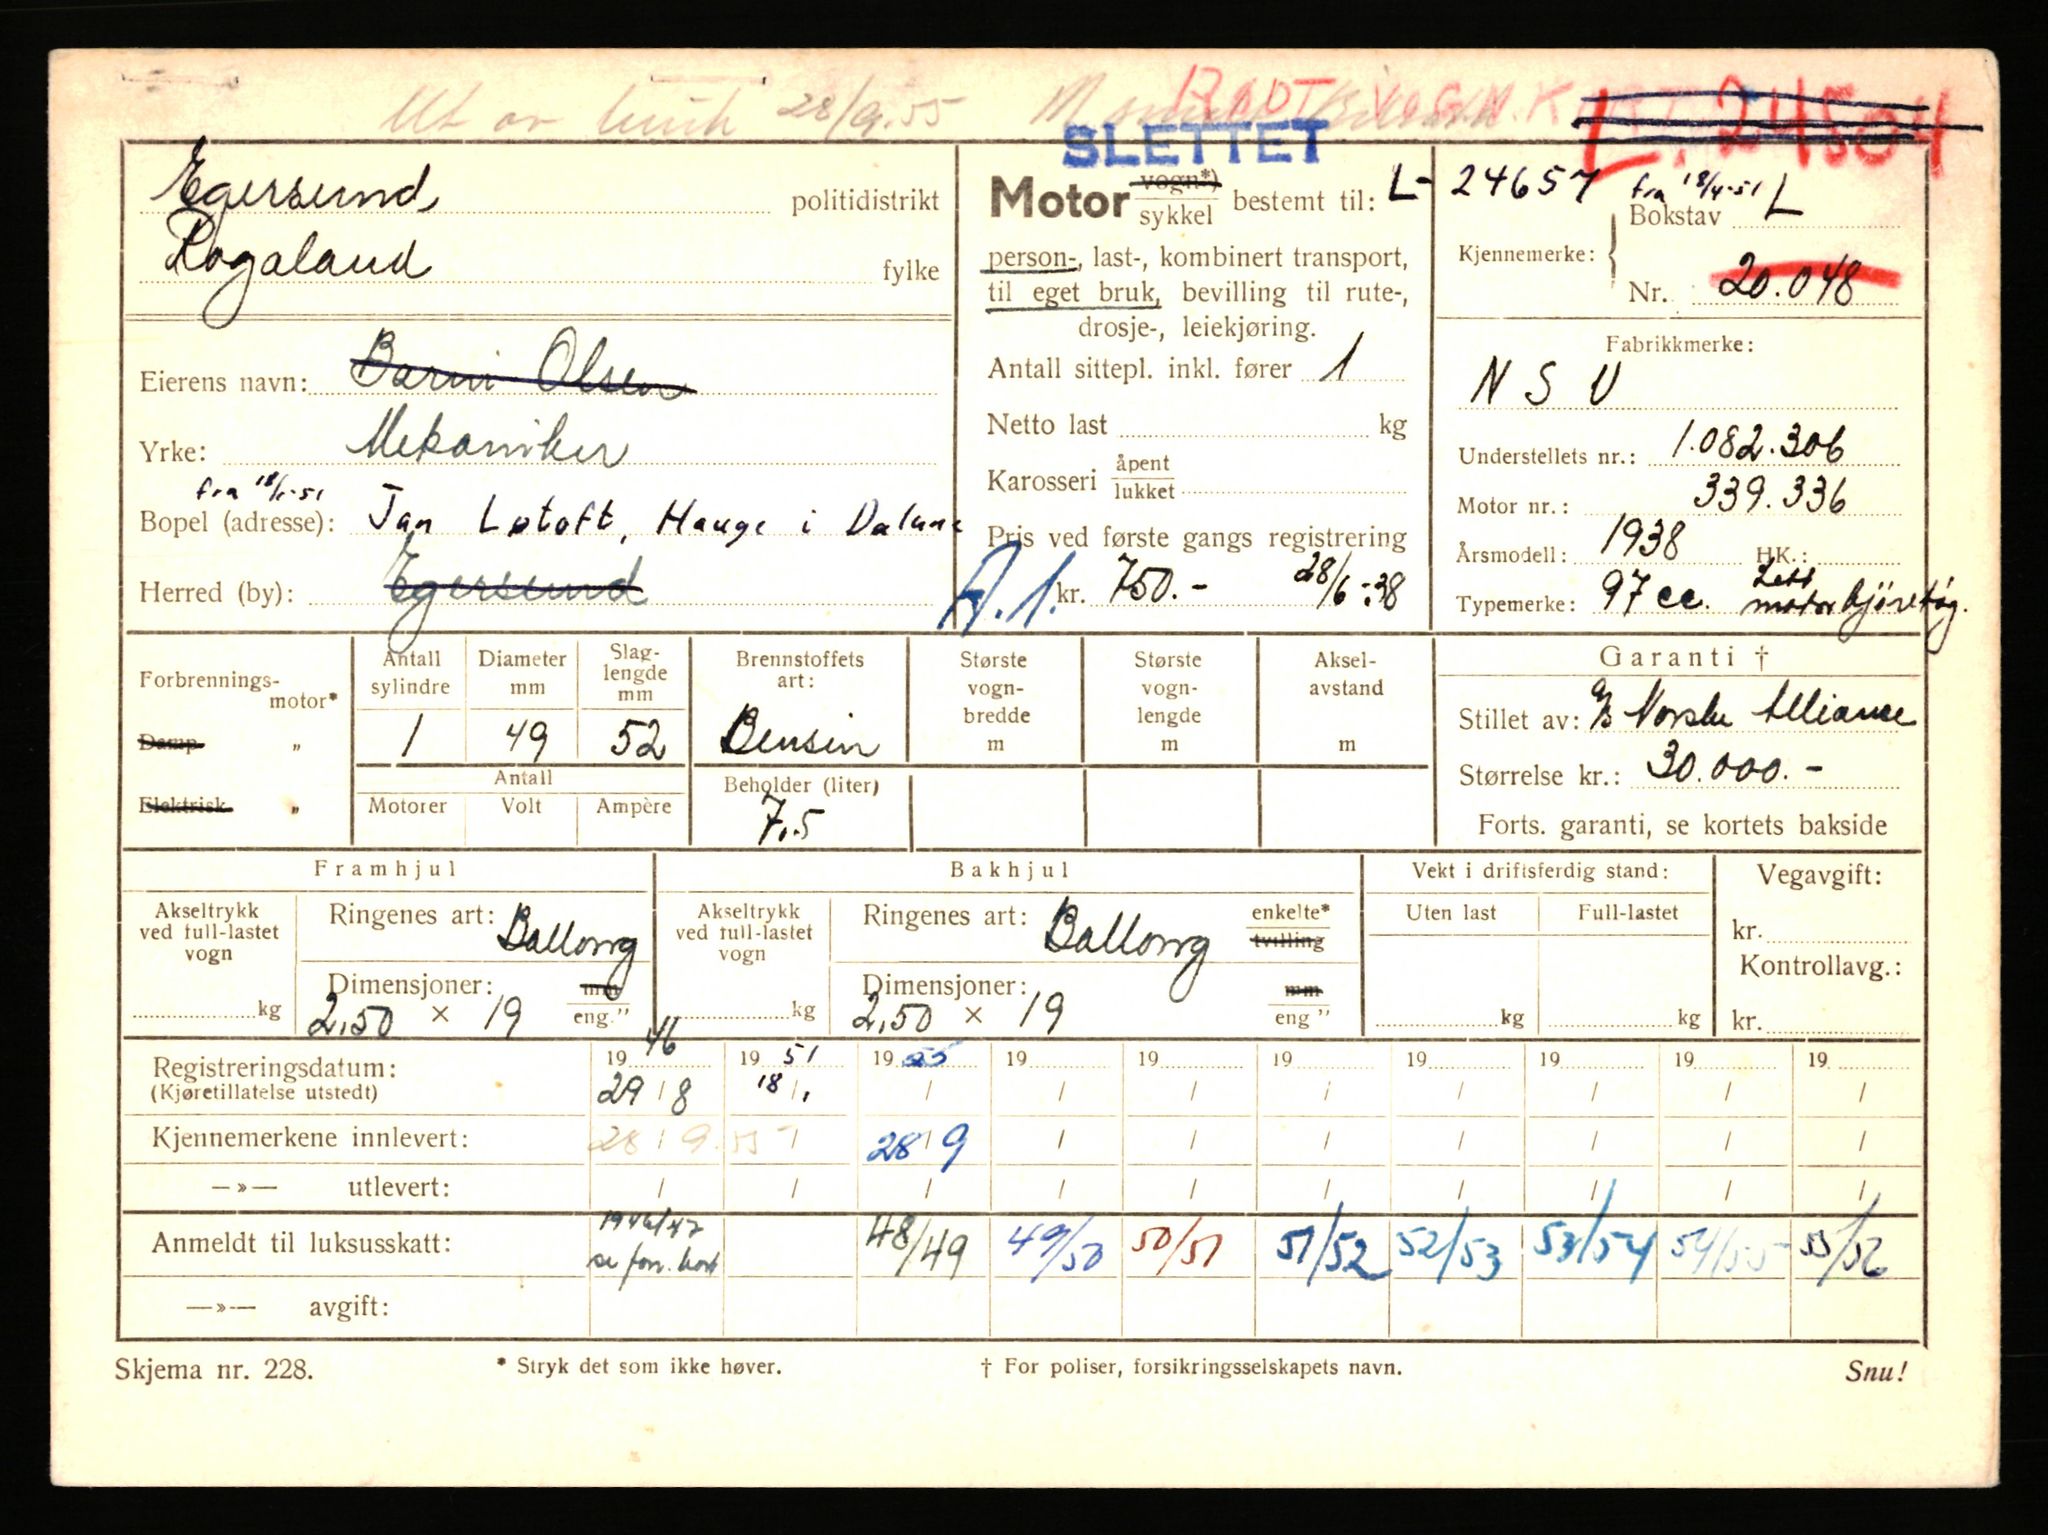 Ut av bruk 28/9.55
RØDT VOGNKORT
L. 24504
SLETTET
Egersund, politidistrikt
Rogaland fylke
Eierens navn: Barni Olsen
Yrke: Mekaniker
fra 18/1-51
Bopel (adresse): Jan Løtoft, Hauge i Dalane
Herred (by): Egersund
Motor vogn*) sykkel bestemt til:
person-, last-, kombinert transport,
til eget bruk, bevilling til rute-,
drosje-, leiekjøring.
Antall sittepl. inkl. fører 1
Netto last kg
Karosseri åpent lukket
Pris ved første gangs registrering
A.1. kr. 750.- 28/6-38
L- 24657 fra 18/4-51
Kjennemerke: Bokstav L
Nr. 20.048
Fabrikkmerke:
N S U
Understellets nr.: 1.082.306
Motor nr.: 339.336
Årsmodell: 1938 HK.:
Typemerke: 97 cc. Lett motorkjøretøg.
Forbrenningsmotor*
Damp „
Elektrisk „
Antall sylindre 1
Diameter mm 49
Slaglengde mm 52
Antall
Motorer Volt Ampère
Brennstoffets art: Bensin
Beholder (liter) 7.5
Største vognbredde m
Største vognlengde m
Akselavstand m
Garanti †
Stillet av: A/S Norske Alliance
Størrelse kr.: 30.000.-
Forts. garanti, se kortets bakside
Framhjul
Akseltrykk ved full-lastet vogn kg
Ringenes art: Ballong
Dimensjoner: mm
2,50 × 19 eng."
Bakhjul
Akseltrykk ved full-lastet vogn kg
Ringenes art: Ballong enkelte* tvilling
Dimensjoner: mm
2,50 × 19 eng "
Vekt i driftsferdig stand:
Uten last Full-lastet
kg kg
Vegavgift:
kr.
Kontrollavg.:
kr.
Registreringsdatum: 19 46 19 51 19 55 19 19 19 19 19 19 19
(Kjøretillatelse utstedt) 29 / 8 18 / 1 / / / / / / / /
Kjennemerkene innlevert: 28 / 9.55 / 28 / 9 / / / / / / /
—»— utlevert: / / / / / / / / / /
Anmeldt til luksusskatt: 1946/47 se forr. kort 48/49 49/50 50/51 51/52 52/53 53/54 54/55 55/56
—»— avgift:
Skjema nr. 228. * Stryk det som ikke høver. † For poliser, forsikringsselskapets navn. Snu!